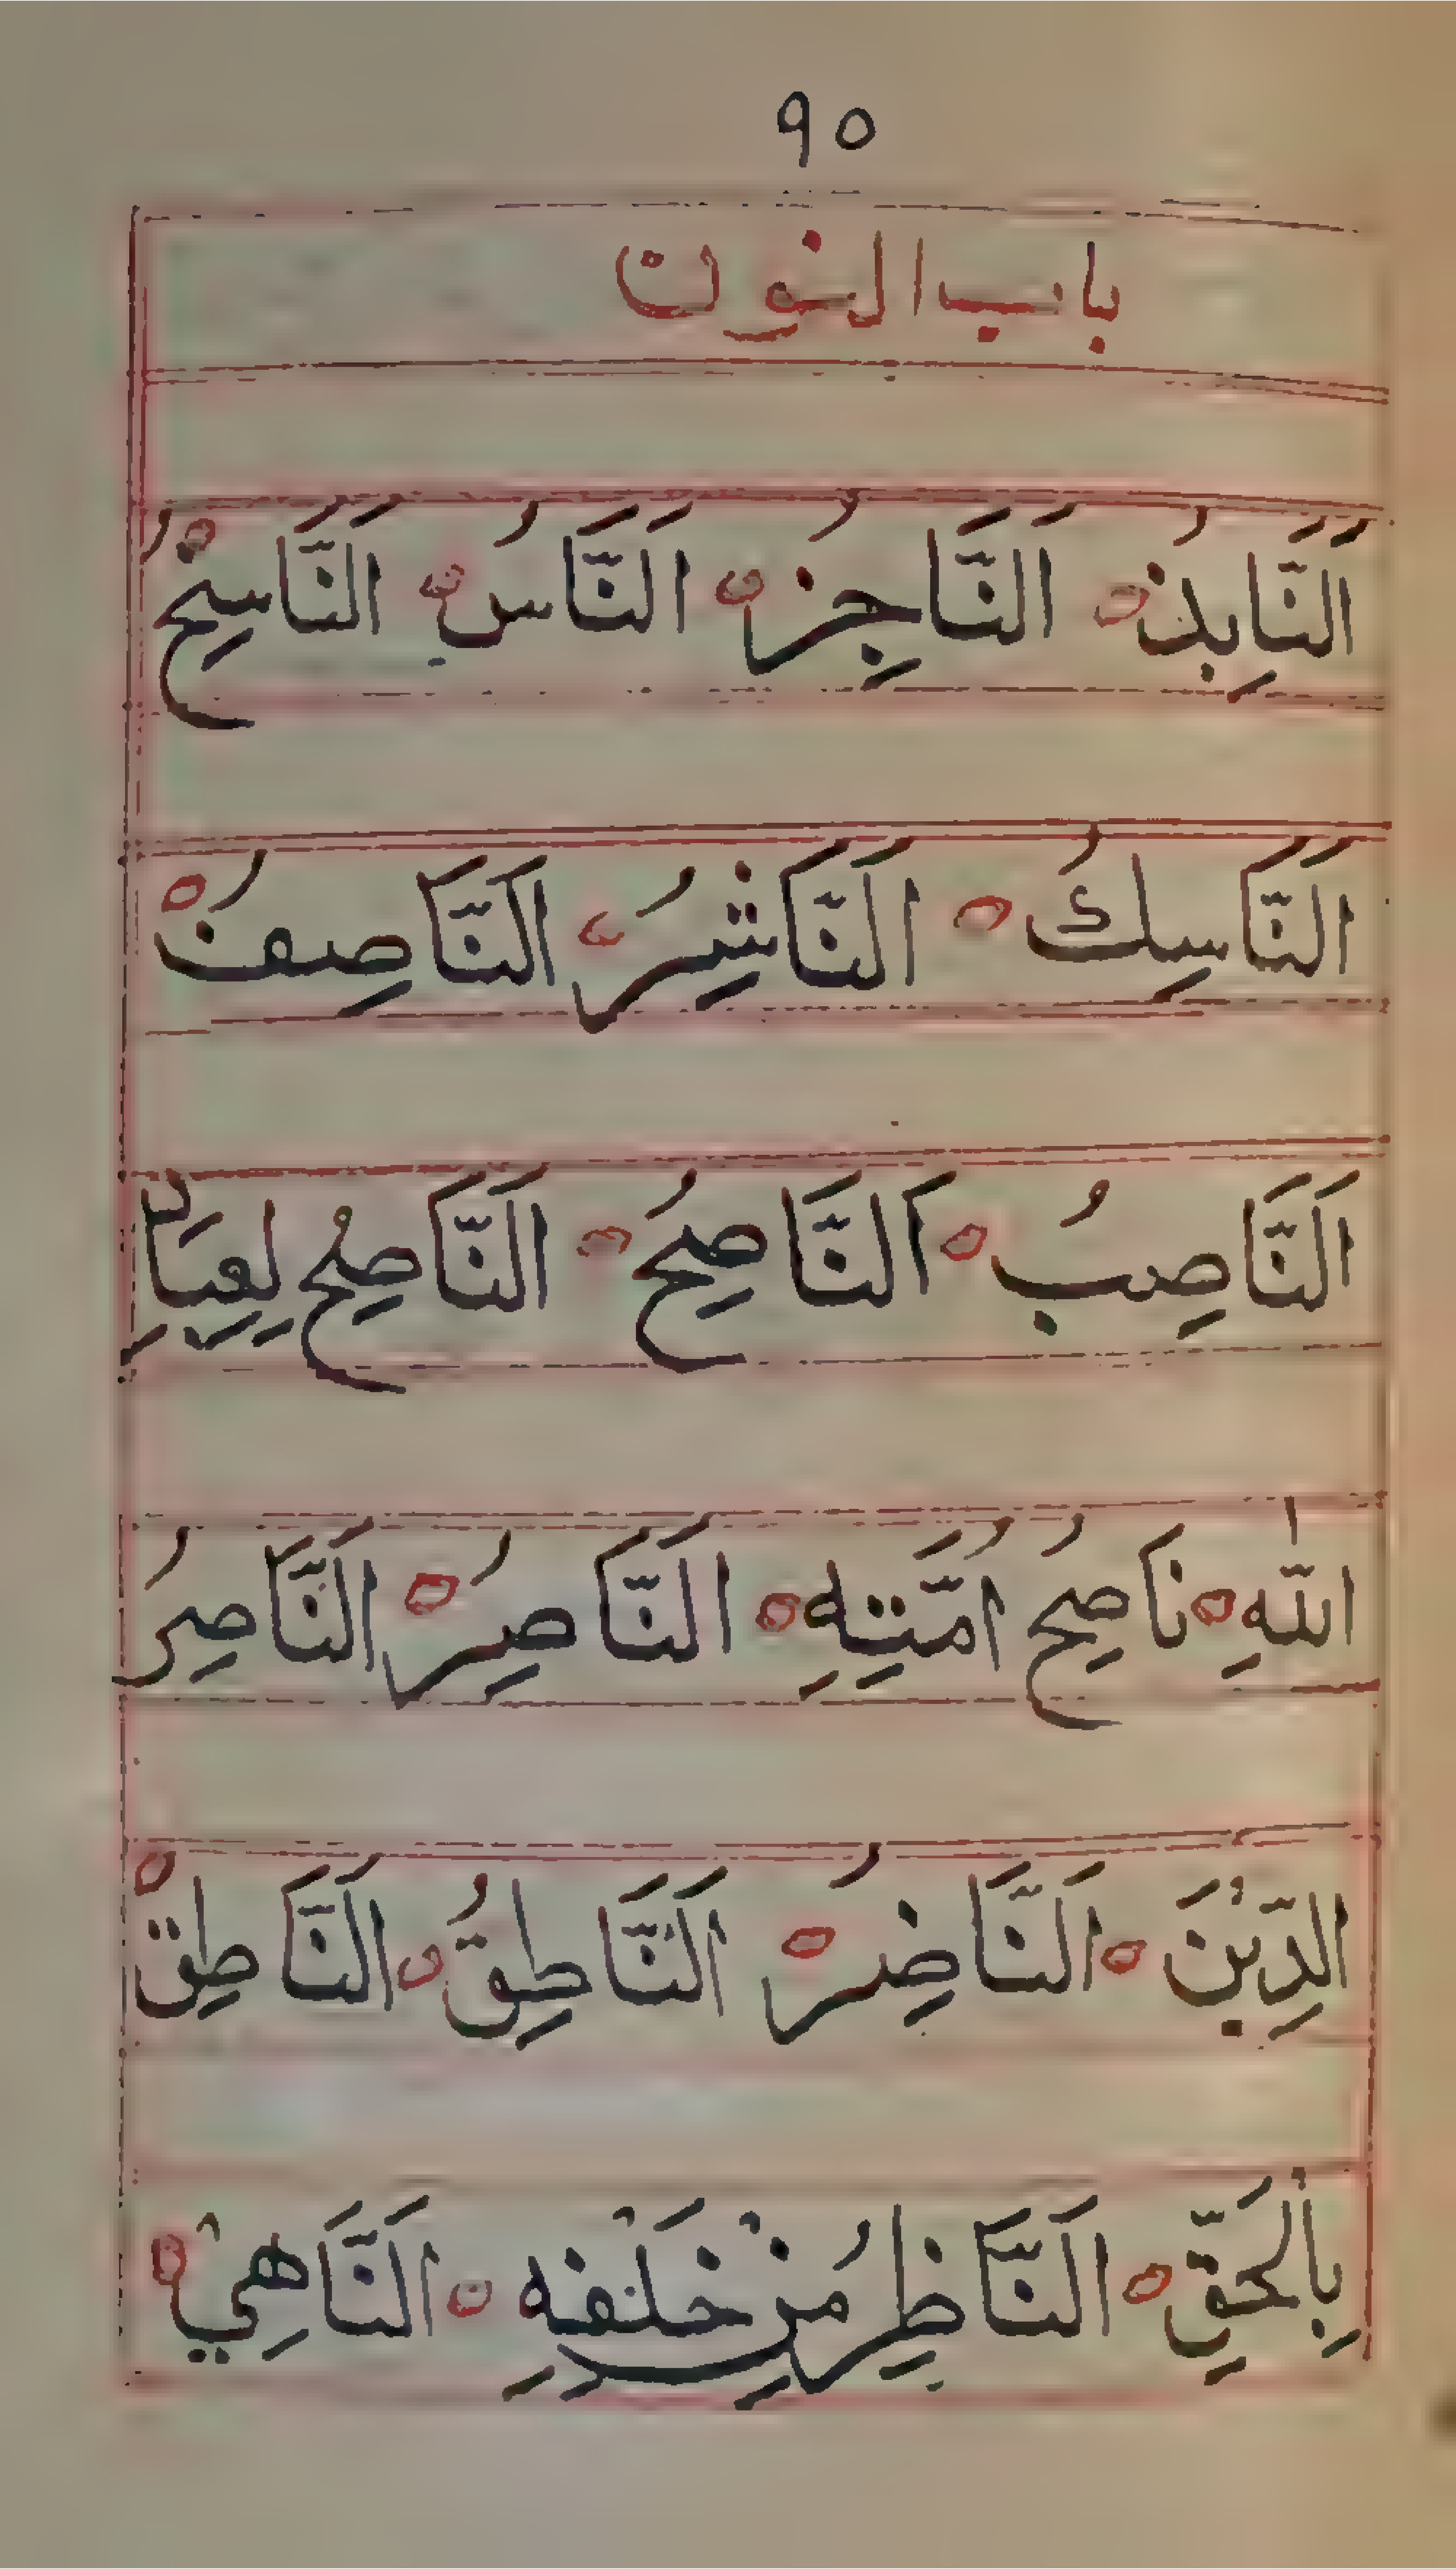 ٩٥
باب النون
اَلنَّابِذُ اَلنَّاجِزُ اَلنَّاسُ اَلنَّاسِخُ
اَلنَّاسِكُ اَلنَّاشِرُ اَلنَّاصِفُ
اَلنَّاصِبُ اَلنَّاصِحُ اَلنَّاصِحُ لِعِبَادِ
اللّٰهِ نَاصِحُ اُمَّتِهِ اَلنَّاصِرُ اَلنَّاصِرُ
الدِّيْنَ اَلنَّاضِرُ اَلنَّاطِقُ اَلنَّاطِقُ
بِالْحَقِّ اَلنَّاظِرُ مِنْ خَلْفِهِ اَلنَّاهِيْ